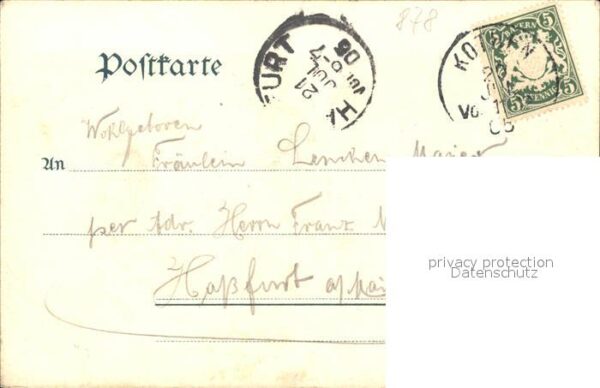 878
Postkarte
HASSFURT
21 JUL
05
KÖTZ
Vor. 11
05
5 BAYERN 5
5 PFENNIG 5
Wohlgeboren
An Fräulein Lenchen Maier
per Adr. Herrn Franz
Haßfurt a/Mai
privacy protection
Datenschutz